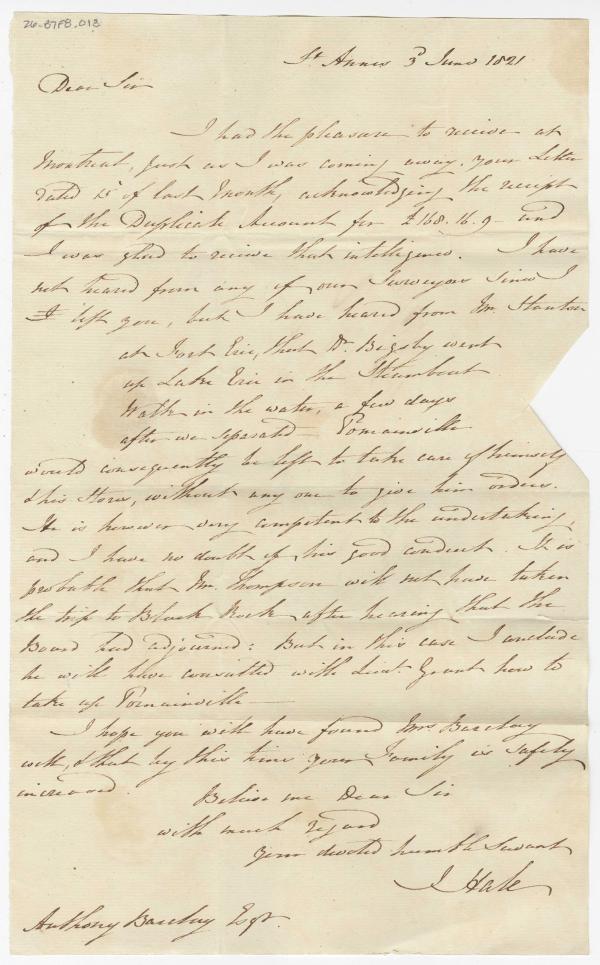 26-87P8.013
St Annes 3d June 1821
Dear Sir
I had the pleasure to receive at
Montreal, just as I was coming away, your Letter
dated 15th of last Month, acknowledging the receipt
of the Duplicate Account for £168.16.9 - and
I was glad to receive that intelligence. I have
not heard from any of our Surveyors since I
I left you, but I have heard from Mr. Stanton
at Fort Erie, that Dr. Bigsby went
up Lake Erie in the Steamboat
Walk in the water, a few days
after we separated Pomainville
would consequently be left to take care of himself
& his Stores, without any one to give him orders.
He is however very competent to the undertaking,
and I have no doubt of his good conduct. It is
probable that Mr. Thompson will not have taken
the trip to Black Rock after hearing that the
Board had adjourned: But in this case I conclude
he will have consulted with Lieut. Grant how to
take up Pomainville —
I hope you will have found Mrs Barclay
well, & that by this time your Family is safely
increased.
Believe me Dear Sir
with much regard
your devoted humble Servant
J Hale
Anthony Barclay Esqr.